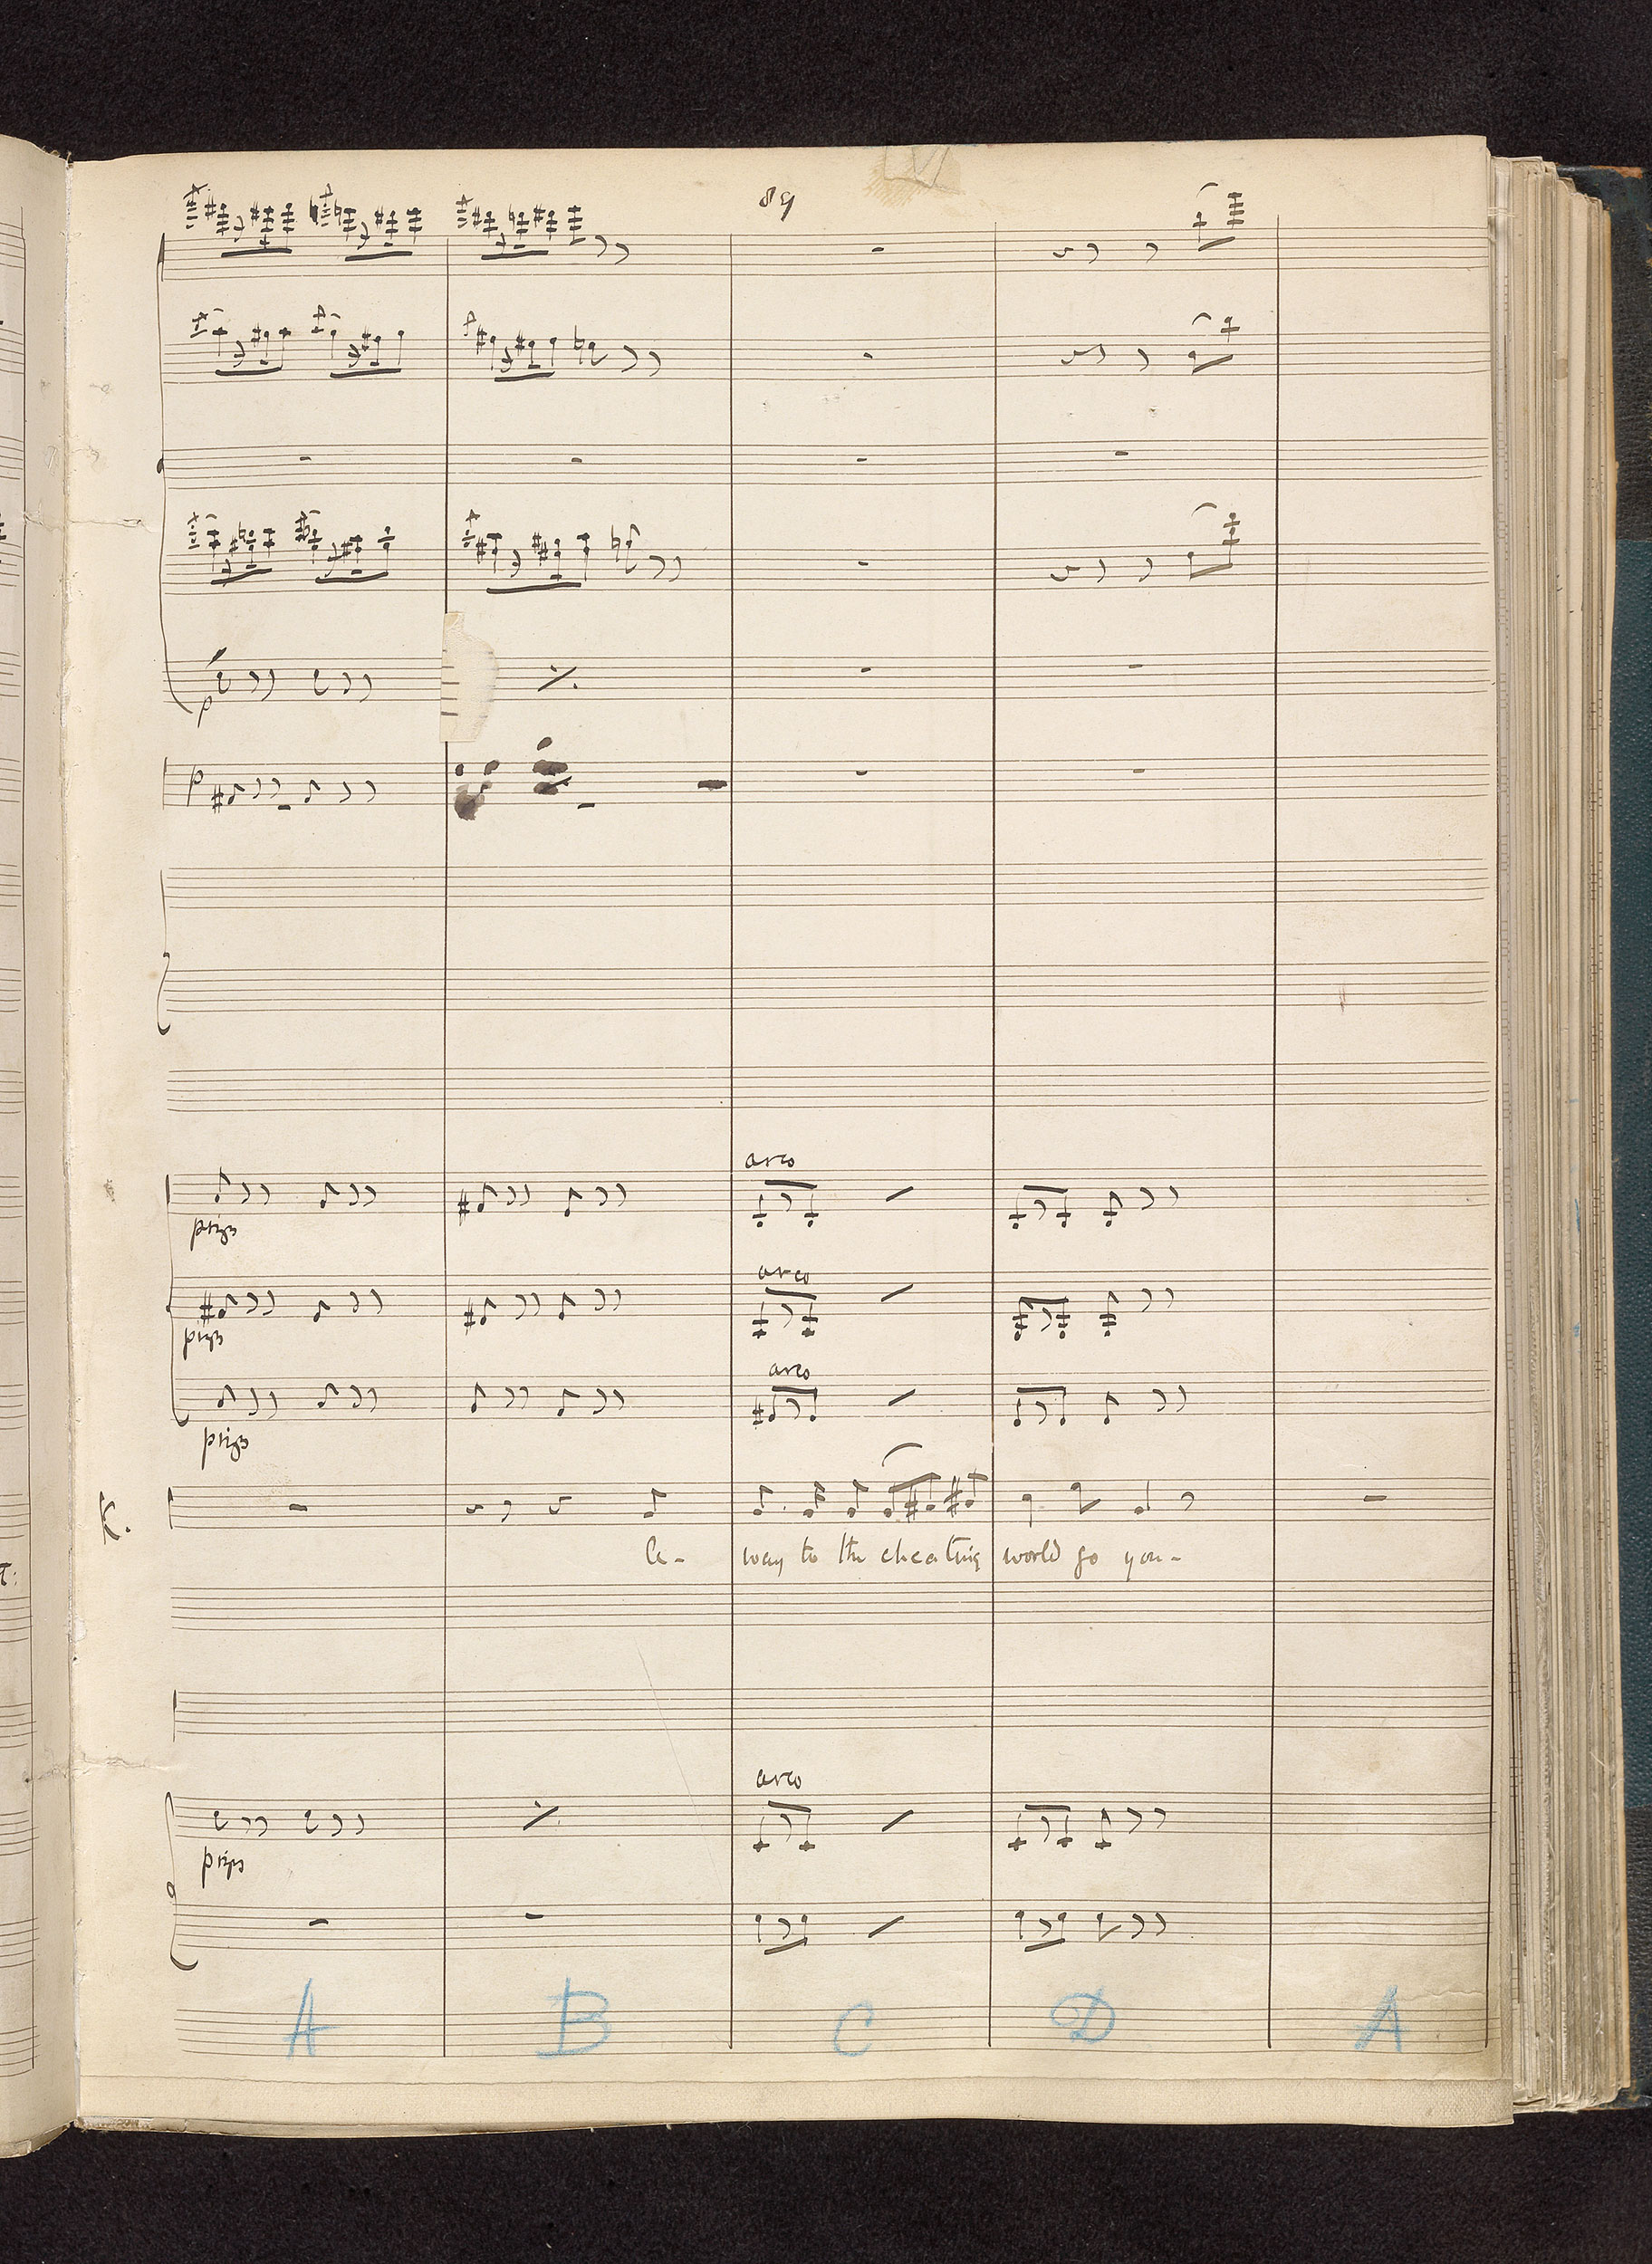 89
p
p
arco
pizz
arco
pizz
arco
pizz
K.
A- way to the cheating world go you-
arco
pizz
A B C D A